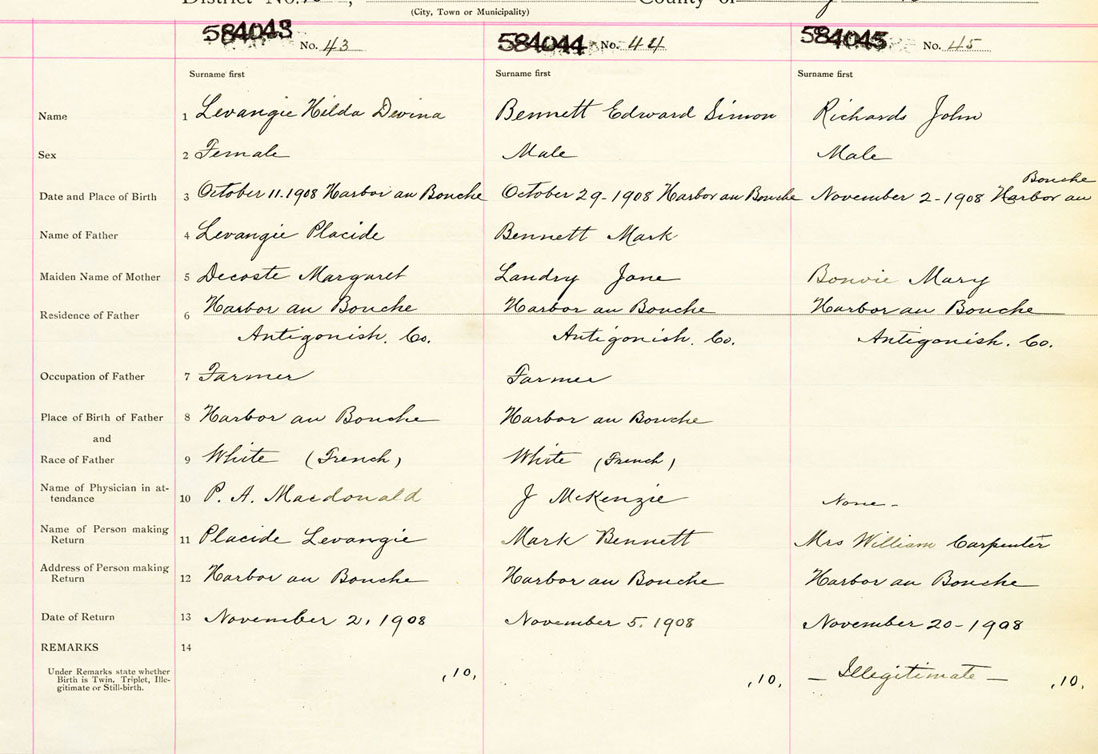 District No.
County of
(City, Town or Municipality)
584043 No. 43 584044 No. 44 584045 No. 45
Surname first Surname first Surname first
Name 1 Levangie Hilda Devina Bennett Edward Simon Richards John
Sex 2 Female Male Male
Bouche
Date and Place of Birth 3 October 11. 1908 Harbor au Bouche October 29 - 1908 Harbor au Bouche November 2 - 1908 Harbor au
Name of Father 4 Levangie Placide Bennett Mark
Maiden Name of Mother 5 Decoste Margaret Landry Jane Bonvie Mary
Residence of Father 6 Harbor au Bouche Harbor au Bouche Harbor au Bouche
Antigonish. Co. Antigonish. Co. Antigonish. Co.
Occupation of Father 7 Farmer Farmer
Place of Birth of Father 8 Harbor au Bouche Harbor au Bouche
and
Race of Father 9 White (French) White (French)
Name of Physician in at-
tendance 10 P. A. Macdonald J McKenzie None -
Name of Person making
Return 11 Placide Levangie Mark Bennett Mrs William Carpenter
Address of Person making
Return 12 Harbor au Bouche Harbor au Bouche Harbor au Bouche
Date of Return 13 November 2, 1908 November 5, 1908 November 20 - 1908
REMARKS 14
Under Remarks state whether
Birth is Twin, Triplet, Ille-
gitimate or Still-birth.
,10, ,10, - Illegitimate - ,10,